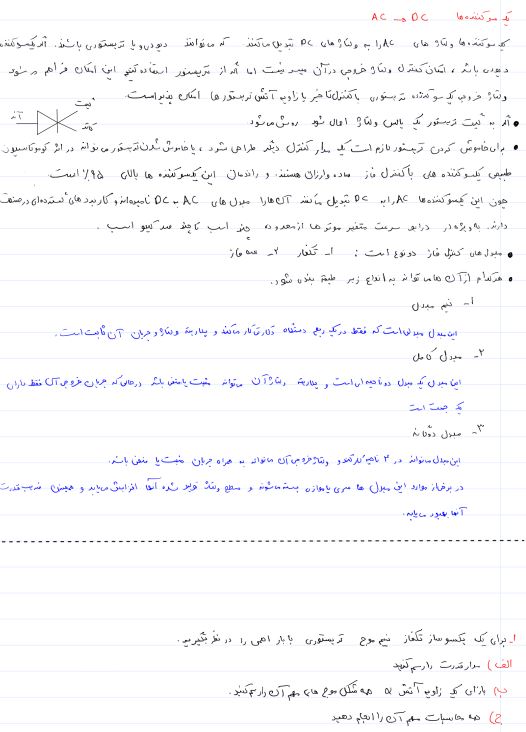 یک سو کننده ها AC → DC
یک سو کننده ها ولتاژ های AC را به ولتاژ های DC تبدیل می‌کنند که می‌توانند دیودی و یا تریستوری باشند. اگر یکسوکننده
دیودی باشد، امکان کنترل ولتاژ خروجی در آن میسر نیست اما اگر از تریستور استفاده کنیم این امکان فراهم می شود
ولتاژ خروجی یک سو کننده تریستوری با کنترل تاخیر یا زاویه آتش تریستور ها امکان پذیر است.
گیت
آند
کاتد
• اگر به گیت تریستور یک پالس ولتاژ اعمال شود روشن می‌شود
• برای خاموش کردن تریستور لازم است یک مدار کنترل دیگر طراحی شود، یا خاموش شدن تریستور می تواند در اثر کوموتاسیون
طبیعی یکسوکننده های با کنترل فاز ساده و ارزان هستند و راندمان این یکسوکننده ها بالای ۹۵٪ است.
چون این یکسوکننده ها AC را به DC تبدیل می‌کنند آن‌ها را مبدل های AC به DC نامیده‌اند و کاربرد های گسترده‌ای در صنعت
دارند. به ویژه در درایو سرعت متغیر موتورها از محدوده چند اسب تا چند صد کیلو اسب.
• مبدل های کنترل فاز دو نوع است: ۱- تکفاز ۲- سه فاز
• هرکدام از آن ها می تواند به انواع زیر طبقه بندی شود.
۱- نیم مبدل
این مبدل مبدلی است که فقط در یک ربع دستگاه دکارتی کار می‌کند و پلاریته ولتاژ و جریان آن ثابت است.
۲- مبدل کامل
این مبدل یک مبدل دو ناحیه ای است و پلاریته ولتاژ آن می‌تواند مثبت یا منفی باشد در حالی که جریان خروجی آن فقط دارای
یک جهت است
۳- مبدل دوگانه
این مبدل می‌تواند در ۴ ناحیه کار کند و ولتاژ خروجی آن می‌تواند به همراه جریان مثبت یا منفی باشد.
در برخی از موارد این مبدل ها سری یا موازی بسته می‌شوند و سطح ولتاژ تولید شده آنها افزایش می‌یابد و همچنین ضریب قدرت
آنها بهبود می یابد.
۱- برای یک یکسو ساز تکفاز نیم موج تریستوری با بار اهمی را در نظر بگیرید.
الف) مدار قدرت را رسم کنید
ب) بازای یک زاویه آتش α همه شکل موج های مهم آن را رسم کنید.
ج) همه محاسبات مهم آن را انجام دهید